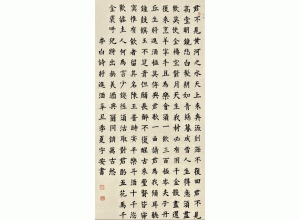 君不見黃河之水天上來奔流到海不復回君不見
高堂明鏡悲白髮朝如青絲暮成雪人生得意須盡
歡莫使金樽空對月天生我材必有用千金散盡還
復來烹羊宰牛且為樂會須一飲三百杯岑夫子丹
丘生將進酒杯莫停與君歌一曲請君為我傾耳聽
鐘鼓饌玉不足貴但願長醉不復醒古來聖賢皆寂
寞惟有飲者留其名陳王昔時宴平樂斗酒十千恣
歡謔主人何為言少錢徑須沽取對君酌五花馬千
金裘呼兒將出換美酒與爾同銷萬古愁
李白詩將進酒辛丑夏寧安書